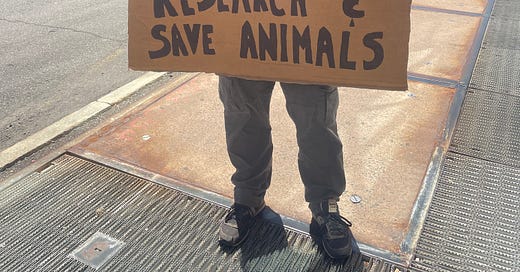 RESEARCH &
SAVE ANIMALS